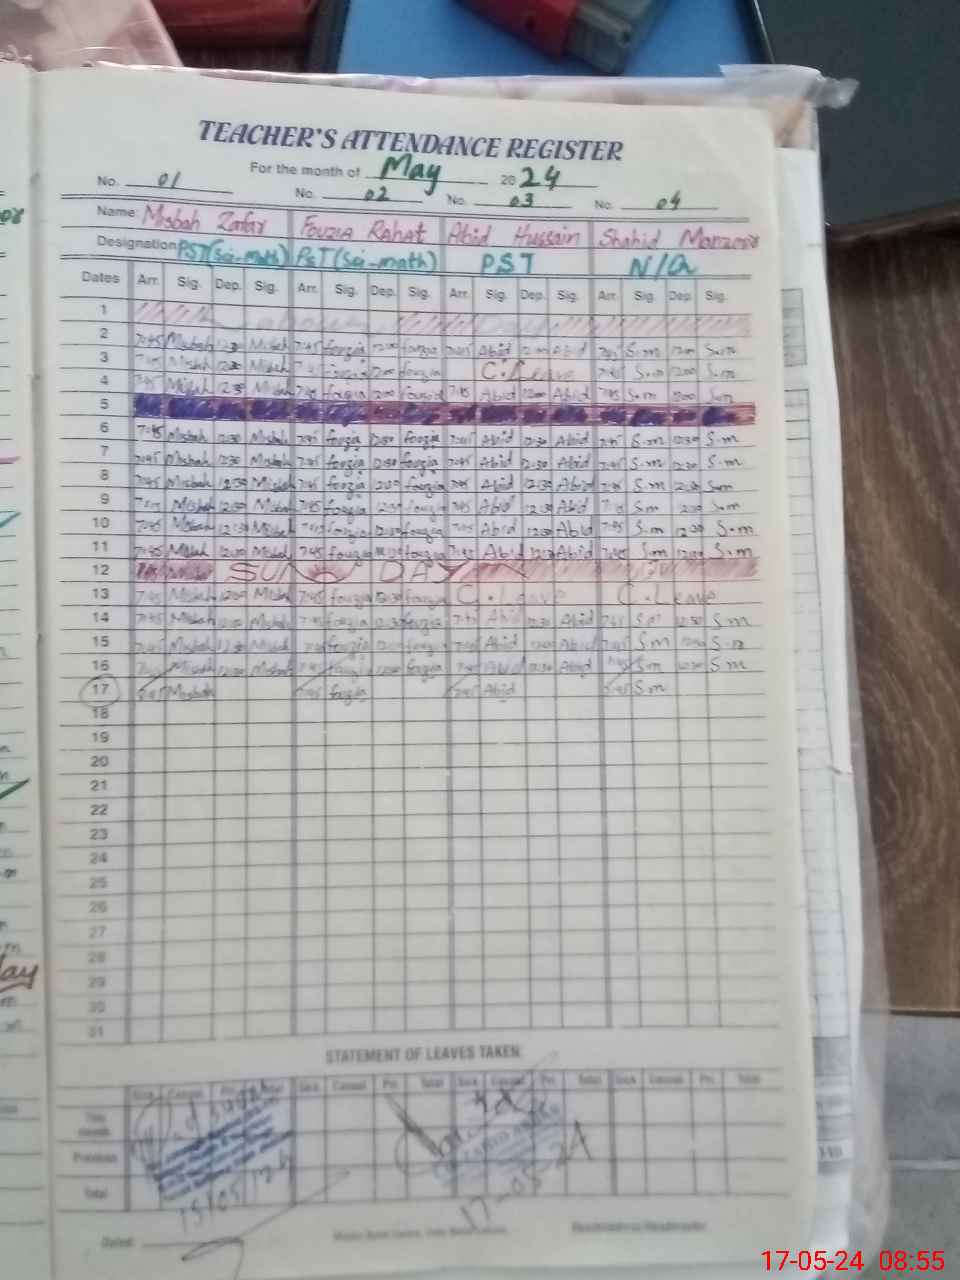 TEACHER'S ATTENDANCE REGISTER
For the month of May 2024
No. 01 No. 02 No. 03 No. 04
Name: Misbah Zafar Fouzia Rahat Abid Hussain Shahid Manzoor
Designation PST(Sci-math) PST(Sci-math) PST N/Q
Dates Arr. Sig. Dep. Sig. Arr. Sig. Dep. Sig. Arr. Sig. Dep. Sig. Arr. Sig. Dep. Sig.
1
2 7:45 Misbah 12:30 Misbah 7:45 fouzia 12:00 fouzia 7:45 Abid 12:00 Abid 7:45 S.m 12:00 S.m
3 7:45 Misbah 12:30 Misbah 7:45 fouzia 12:00 fouzia C.Leave 7:45 S.m 12:00 S.m
4 7:45 Misbah 12:30 Misbah 7:45 fouzia 12:00 fouzia 7:45 Abid 12:00 Abid 7:45 S.m 12:00 S.m
5
6 7:45 Misbah 12:30 Misbah 7:45 fouzia 12:30 fouzia 7:45 Abid 12:30 Abid 7:45 S.m 12:30 S.m
7 7:45 Misbah 12:30 Misbah 7:45 fouzia 12:30 fouzia 7:45 Abid 12:30 Abid 7:45 S.m 12:30 S.m
8 7:45 Misbah 12:30 Misbah 7:45 fouzia 12:30 fouzia 7:45 Abid 12:30 Abid 7:45 S.m 12:30 S.m
9 Misbah 12:30 Misbah 7:45 fouzia 12:30 fouzia 7:45 Abid 12:30 Abid S.m 12:30 S.m
10 7:45 Misbah 12:30 Misbah 7:45 fouzia 12:30 fouzia 7:45 Abid 12:30 Abid 7:45 S.m 12:30 S.m
11 7:45 Misbah Misbah 7:45 fouzia fouzia 7:45 Abid Abid 7:45 S.m S.m
12 SUNDAY
13 7:45 Misbah Misbah 7:45 fouzia 12:30 fouzia C.Leave C.Leave
14 7:45 Misbah Misbah 7:45 fouzia 12:30 fouzia 7:45 Abid 12:30 Abid 7:45 S.m 12:30 S.m
15 7:45 Misbah 12:30 Misbah 7:45 fouzia fouzia 7:45 Abid Abid 7:45 S.m S.m
16 Misbah 12:30 Misbah 7:45 fouzia fouzia 7:45 Abid 12:30 Abid 7:45 S.m 12:30 S.m
17 7:45 Misbah 7:45 fouzia 7:45 Abid 7:45 S.m
18
19
20
21
22
23
24
25
26
27
28
29
30
31
STATEMENT OF LEAVES TAKEN
Sick Casual Pri. Total Sick Casual Pri. Total Sick Casual Pri. Total Sick Casual Pri. Total
This month
Previous
Total
15/05/24
17-05-24
Dated:
17-05-24 08:55